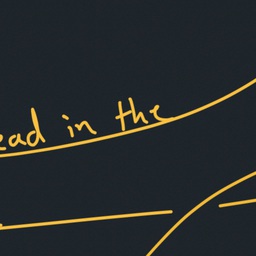 ead in the